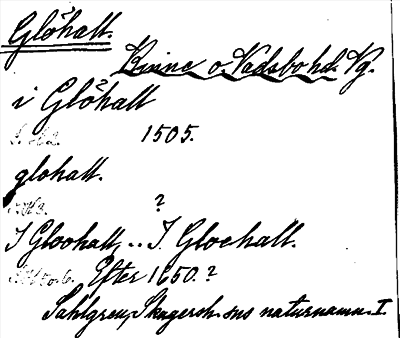 Glöhalt.
Kinne o. Vadsbo hd. Vg.
i Glöhalt
1505.
glohalt.
?
I Gloohalt, .. I. Gloehalt.
Efter 1650.?
Sahlgren, Skagersh. sns naturnamn. I